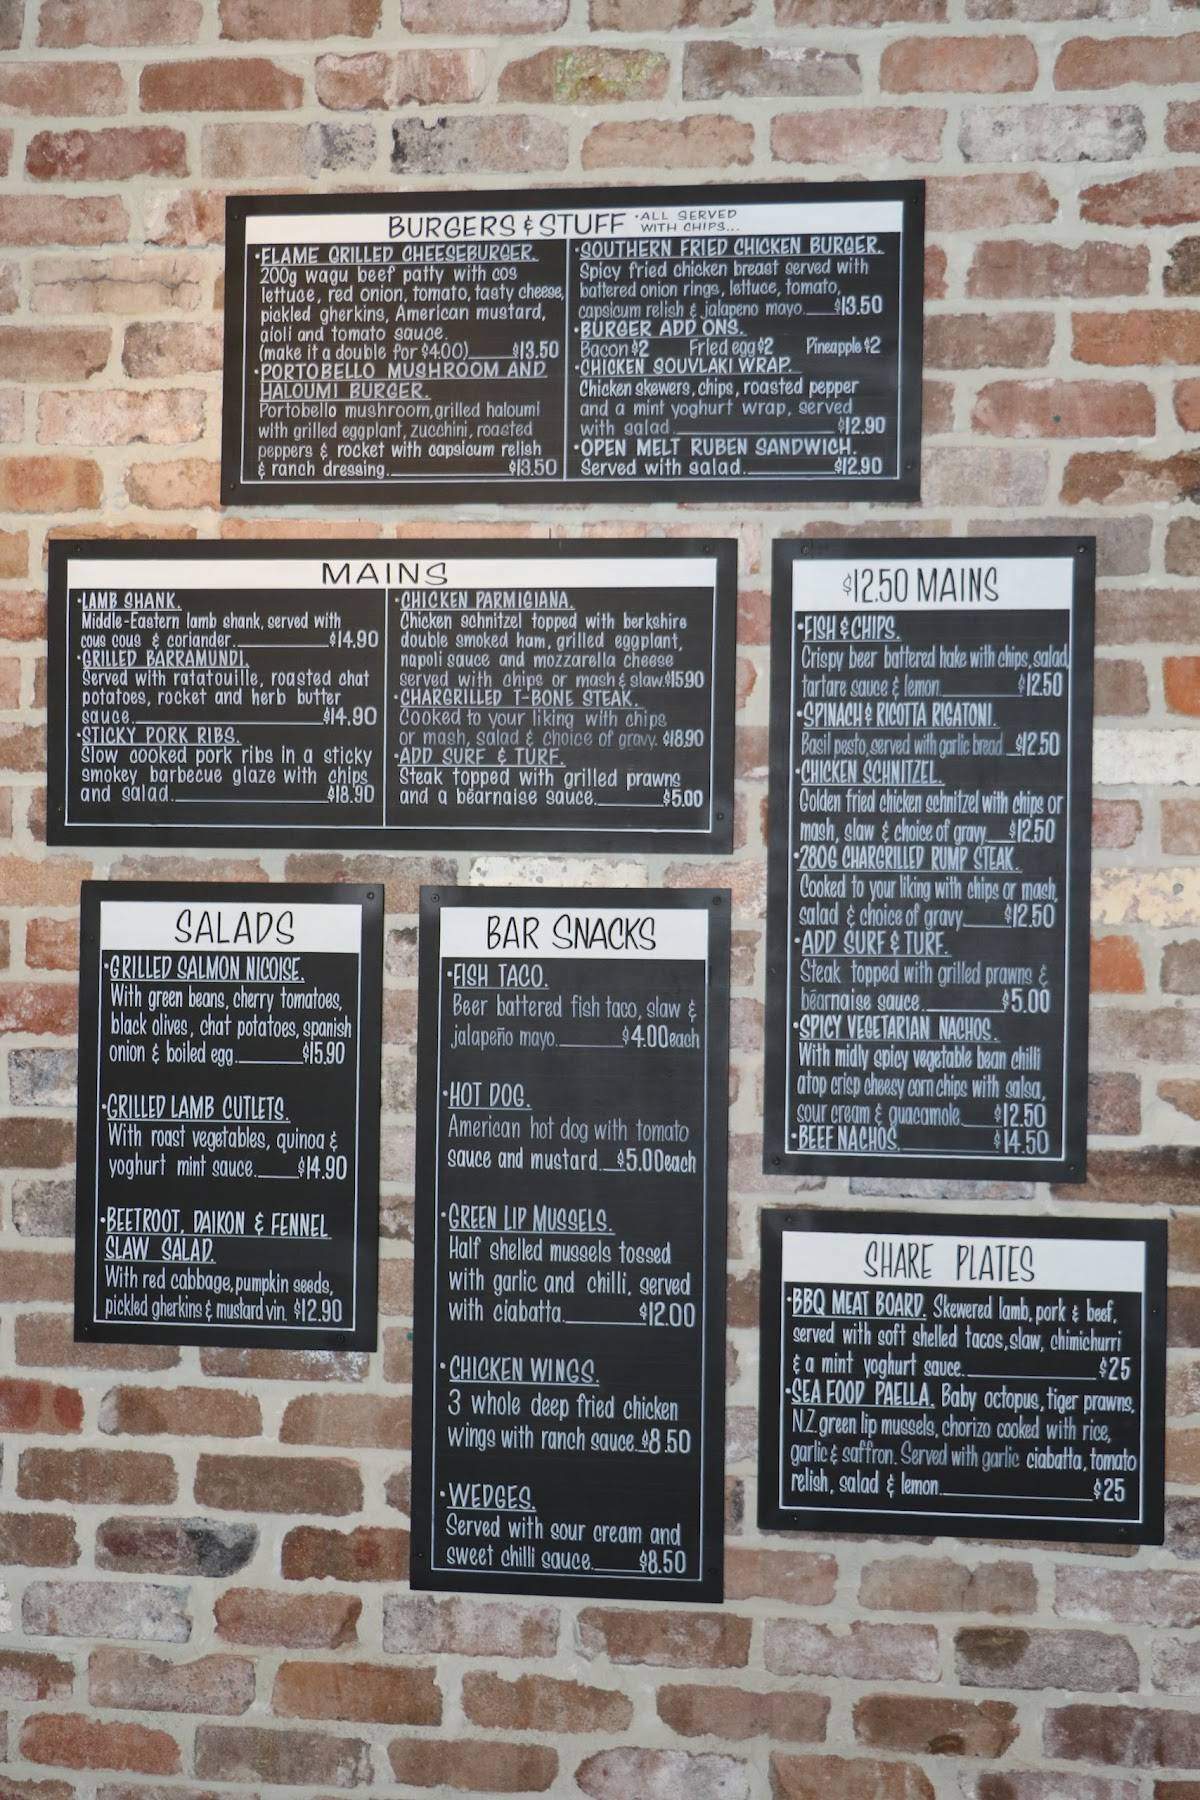 BURGERS & STUFF •ALL SERVED WITH CHIPS...
•FLAME GRILLED CHEESEBURGER.
200g wagu beef patty with cos
lettuce, red onion, tomato, tasty cheese,
pickled gherkins, American mustard,
aioli and tomato sauce.
(make it a double for $4.00) $13.50
•PORTOBELLO MUSHROOM AND
HALOUMI BURGER.
Portobello mushroom, grilled haloumi
with grilled eggplant, zucchini, roasted
peppers & rocket with capsicum relish
& ranch dressing. $13.50
•SOUTHERN FRIED CHICKEN BURGER.
Spicy fried chicken breast served with
battered onion rings, lettuce, tomato,
capsicum relish & jalapeno mayo. $13.50
•BURGER ADD ONS.
Bacon $2 Fried egg $2 Pineapple $2
•CHICKEN SOUVLAKI WRAP.
Chicken skewers, chips, roasted pepper
and a mint yoghurt wrap, served
with salad. $12.90
•OPEN MELT RUBEN SANDWICH.
Served with salad. $12.90
MAINS
•LAMB SHANK.
Middle-Eastern lamb shank, served with
cous cous & coriander. $14.90
•GRILLED BARRAMUNDI.
Served with ratatouille, roasted chat
potatoes, rocket and herb butter
sauce. $14.90
•STICKY PORK RIBS.
Slow cooked pork ribs in a sticky
smokey barbecue glaze with chips
and salad. $18.90
•CHICKEN PARMIGIANA.
Chicken schnitzel topped with berkshire
double smoked ham, grilled eggplant,
napoli sauce and mozzarella cheese
served with chips or mash & slaw. $15.90
•CHARGRILLED T-BONE STEAK.
Cooked to your liking with chips
or mash, salad & choice of gravy. $18.90
•ADD SURF & TURF.
Steak topped with grilled prawns
and a béarnaise sauce. $5.00
$12.50 MAINS
•FISH & CHIPS.
Crispy beer battered hake with chips, salad,
tartare sauce & lemon. $12.50
•SPINACH & RICOTTA RIGATONI.
Basil pesto, served with garlic bread $12.50
•CHICKEN SCHNITZEL.
Golden fried chicken schnitzel with chips or
mash, slaw & choice of gravy $12.50
•280G CHARGRILLED RUMP STEAK.
Cooked to your liking with chips or mash,
salad & choice of gravy. $12.50
•ADD SURF & TURF.
Steak topped with grilled prawns &
béarnaise sauce. $5.00
•SPICY VEGETARIAN NACHOS.
With midly spicy vegetable bean chilli
atop crisp cheesy corn chips with salsa,
sour cream & guacamole. $12.50
•BEEF NACHOS. $14.50
SALADS
•GRILLED SALMON NICOISE.
With green beans, cherry tomatoes,
black olives, chat potatoes, spanish
onion & boiled egg. $15.90
•GRILLED LAMB CUTLETS.
With roast vegetables, quinoa &
yoghurt mint sauce. $14.90
•BEETROOT, DAIKON & FENNEL
SLAW SALAD.
With red cabbage, pumpkin seeds,
pickled gherkins & mustard vin. $12.90
BAR SNACKS
•FISH TACO.
Beer battered fish taco, slaw &
jalapeño mayo. $4.00each
•HOT DOG.
American hot dog with tomato
sauce and mustard. $5.00each
•GREEN LIP MUSSELS.
Half shelled mussels tossed
with garlic and chilli, served
with ciabatta. $12.00
•CHICKEN WINGS.
3 whole deep fried chicken
wings with ranch sauce. $8.50
•WEDGES.
Served with sour cream and
sweet chilli sauce. $8.50
SHARE PLATES
•BBQ MEAT BOARD. Skewered lamb, pork & beef,
served with soft shelled tacos, slaw, chimichurri
& a mint yoghurt sauce. $25
•SEA FOOD PAELLA. Baby octopus, tiger prawns,
N.Z. green lip mussels, chorizo cooked with rice,
garlic & saffron. Served with garlic ciabatta, tomato
relish, salad & lemon. $25